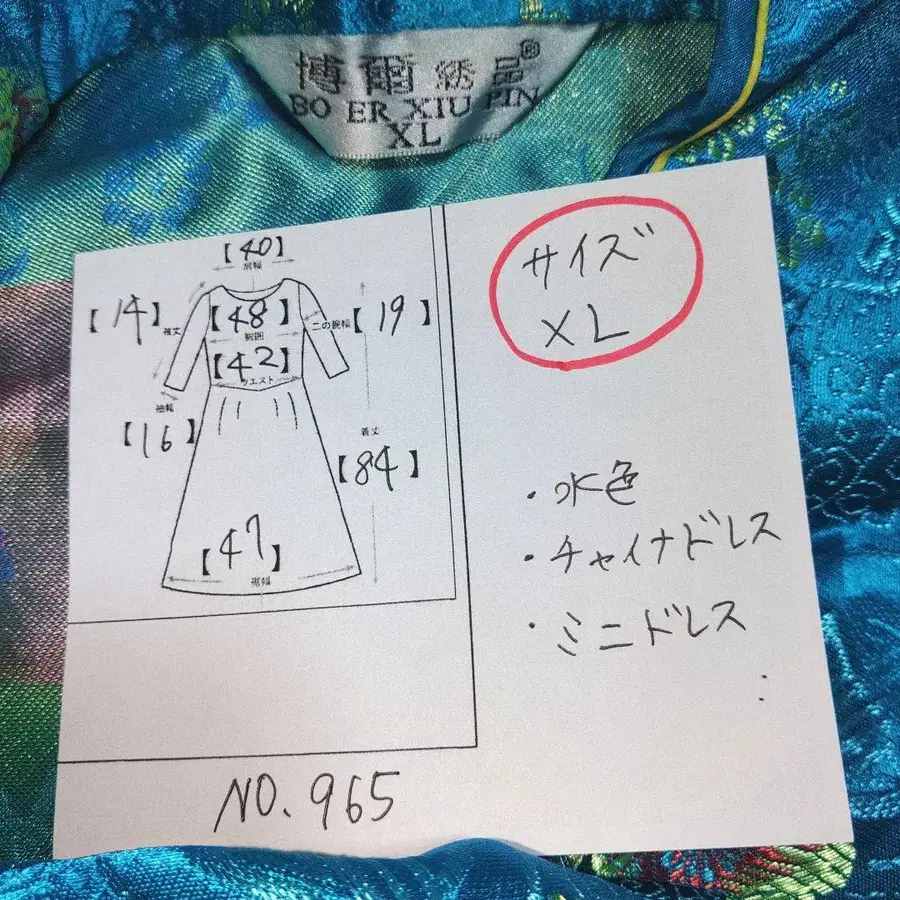 博爾綉品®
BO ER XIU PIN
XL
【40】
肩幅
【14】
袖丈
【48】
胸囲
二の腕幅
【19】
【42】
ウエスト
袖幅
【16】
着丈
【84】
【47】
裾幅
NO.965
サイズ
XL
・水色
・チャイナドレス
・ミニドレス